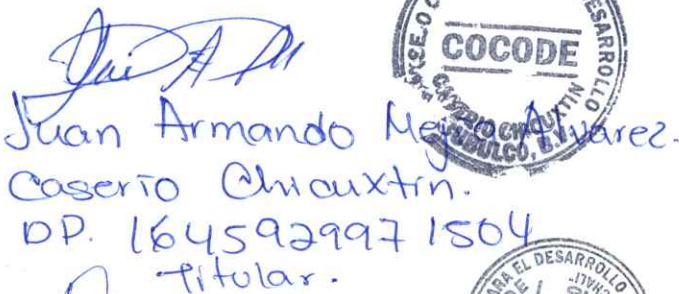 DESARROLLO
COCODE
Juan Armando Mejía Alvarez.
Caserío Chicuxtin.
DP. 1645929971504
Titular.
EL DESARROLLO